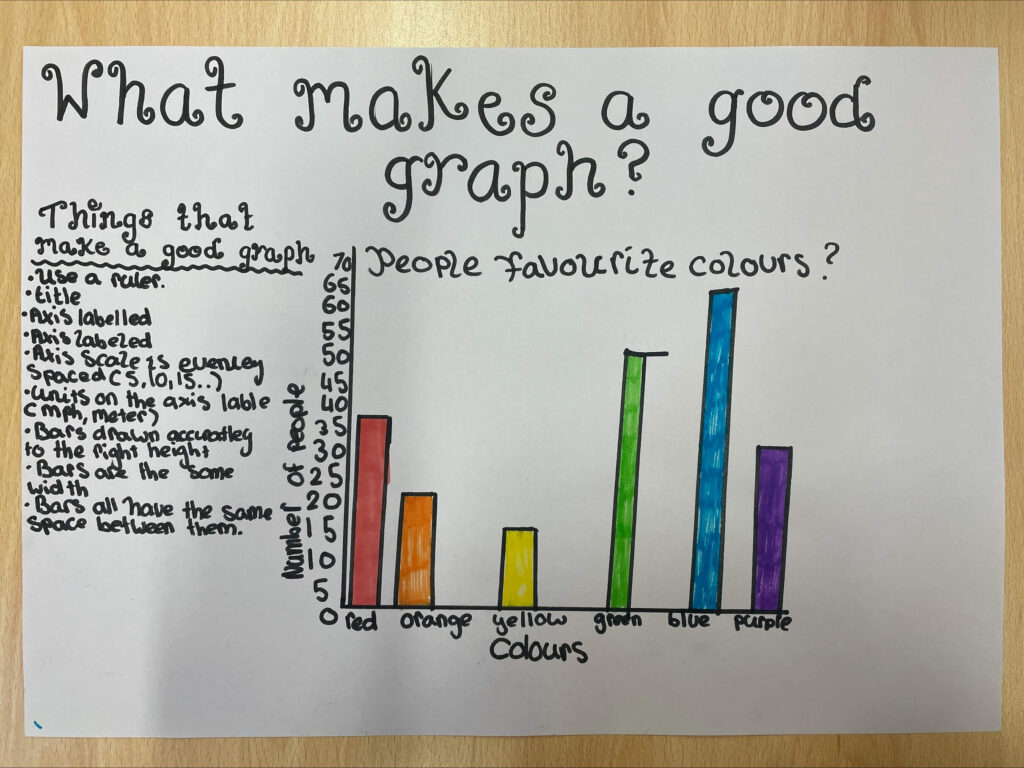 What makes a good
graph?
Things that
make a good graph
•Use a ruler.
•title
•Axis labelled
•Axis labeled
•Axis scale is evenley
spaced (5,10,15..)
•units on the axis lable
(mph, meter)
•Bars drawn accuratley
to the right height
•Bars are the same
width
•Bars all have the same
space between them.
People favourite colours?
Number of people
70
65
60
55
50
45
40
35
30
25
20
15
10
5
0
red orange yellow green blue purple
Colours